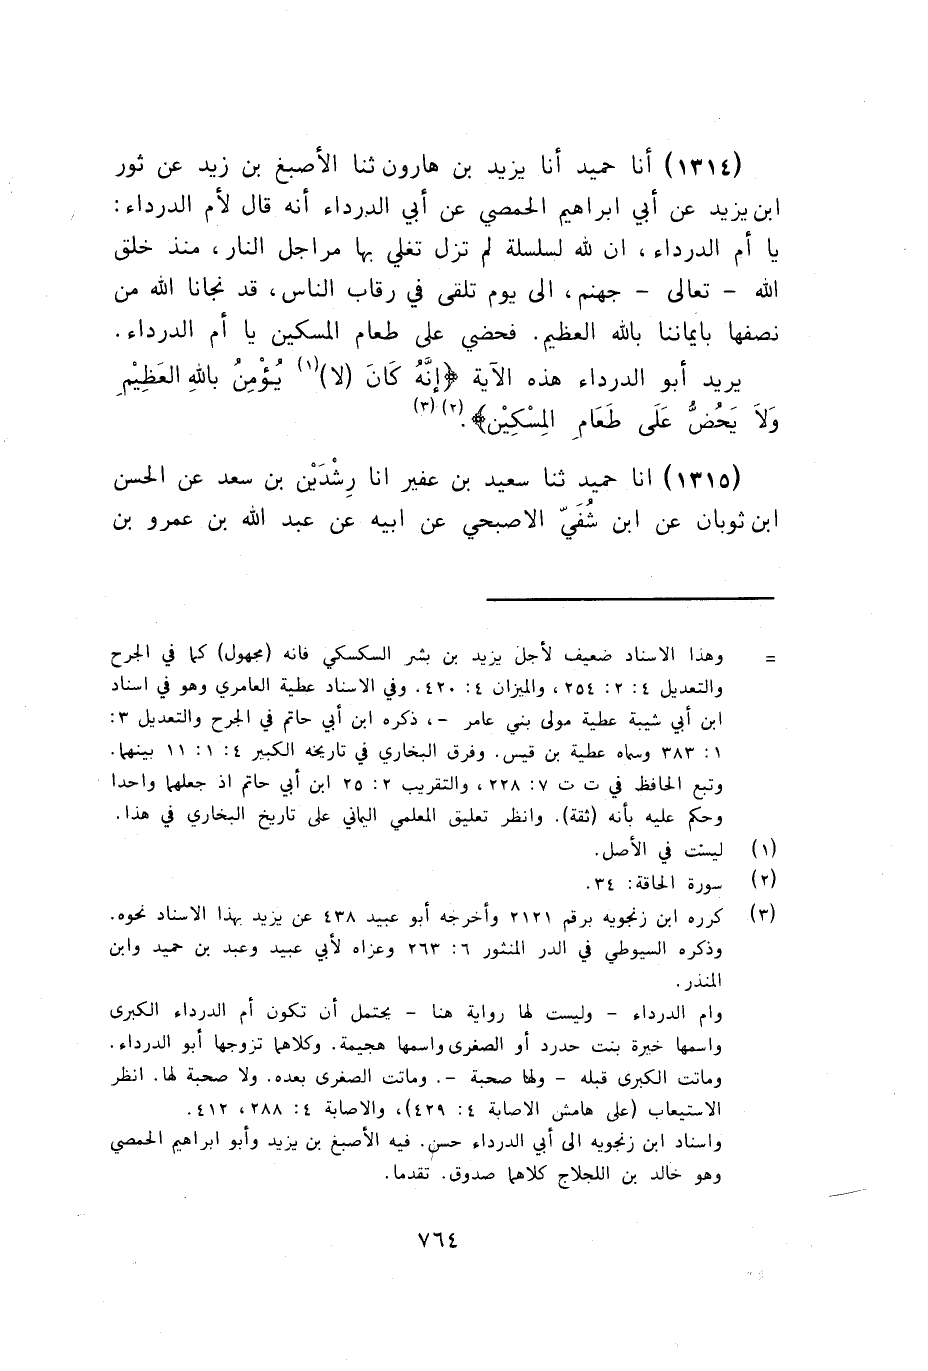 (١٣١٤) أنا حميد أنا يزيد بن هارون ثنا الأصبغ بن زيد عن ثور
ابن يزيد عن أبي ابراهيم الحمصي عن أبي الدرداء أنه قال لأم الدرداء :
يا أم الدرداء ، ان لله لسلسلة لم تزل تغلي بها مراجل النار ، منذ خلق
الله - تعالى - جهنم ، الى يوم تلقى في رقاب الناس ، قد نجانا الله من
نصفها بايماننا بالله العظيم . فحضي على طعام المسكين يا أم الدرداء .
يريد أبو الدرداء هذه الآية ﴿إنَّهُ كَانَ (لا)(١) يُؤْمِنُ بالله العَظِيْمِ
وَلاَ يَحُضُّ عَلَى طَعَامِ المِسْكِيْن﴾ .(٢) (٣)
(١٣١٥) انا حميد ثنا سعيد بن عفير انا رِشْدَيْن بن سعد عن الحسن
ابن ثوبان عن ابن شُفَيّ الاصبحي عن ابيه عن عبد الله بن عمرو بن
= وهذا الاسناد ضعيف لأجل يزيد بن بشر السكسكي فانه (مجهول) كما في الجرح
والتعديل ٤ : ٢ : ٢٥٤ ، والميزان ٤ : ٤٢٠ . وفي الاسناد عطية العامري وهو في اسناد
ابن أبي شيبة عطية مولى بني عامر - ، ذكره ابن أبي حاتم في الجرح والتعديل ٣ :
١ : ٣٨٣ وسماه عطية بن قيس . وفرق البخاري في تاريخه الكبير ٤ : ١ : ١١ بينهما .
وتبع الحافظ في ت ت ٧ : ٢٢٨ ، والتقريب ٢ : ٢٥ ابن أبي حاتم اذ جعلهما واحدا
وحكم عليه بأنه (ثقة) . وانظر تعليق المعلمي اليماني على تاريخ البخاري في هذا .
(١) ليست في الأصل .
(٢) سورة الحاقة : ٣٤ .
(٣) كرره ابن زنجويه برقم ٢١٢١ وأخرجه أبو عبيد ٤٣٨ عن يزيد بهذا الاسناد نحوه .
وذكره السيوطي في الدر المنثور ٦ : ٢٦٣ وعزاه لأبي عبيد وعبد بن حميد وابن
المنذر .
وام الدرداء - وليست لها رواية هنا - يحتمل أن تكون أم الدرداء الكبرى
واسمها خيرة بنت حدرد أو الصغرى واسمها هجيمة . وكلاهما تزوجها أبو الدرداء .
وماتت الكبرى قبله - ولها صحبة - . وماتت الصغرى بعده . ولا صحبة لها . انظر
الاستيعاب (على هامش الاصابة ٤ : ٤٢٩) ، والاصابة ٤ : ٢٨٨ ، ٤١٢ .
واسناد ابن زنجويه الى أبي الدرداء حسن . فيه الأصبغ بن يزيد وأبو ابراهيم الحمصي
وهو خالد بن اللجلاج كلاهما صدوق . تقدما .
٧٦٤